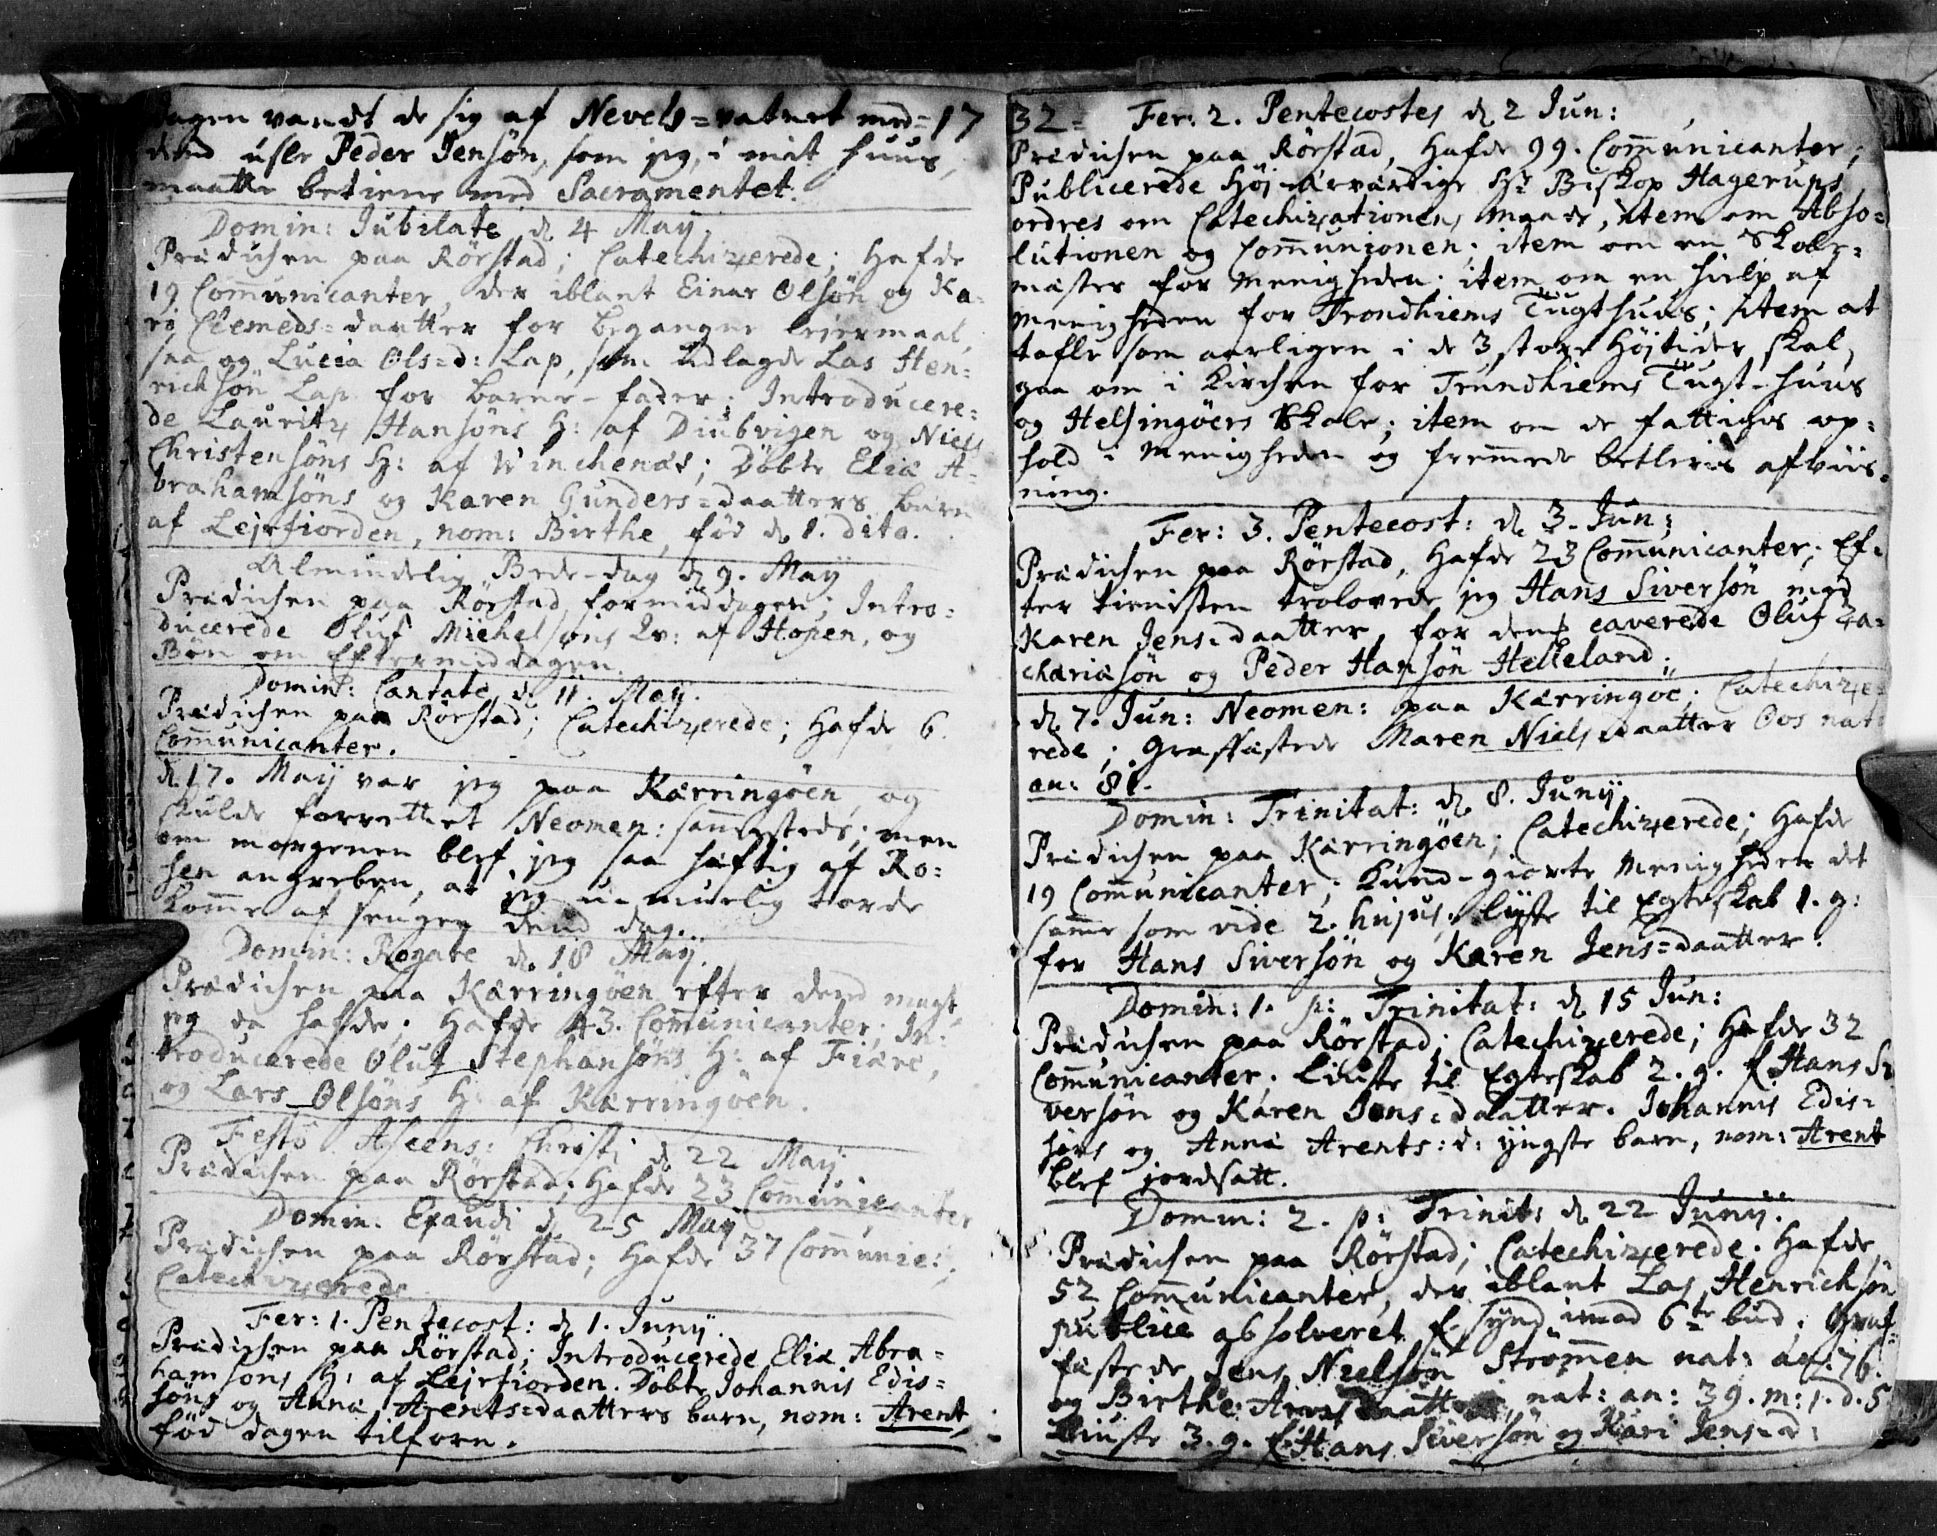 dagen vandt de sig af Nevels=vatnet med= 17
dend usle Peder Jensøn, som jeg, i mit huus,
maatte betiene med Sacramentet.
Domin: Jubilate d. 4 May.
Prædichen paa Rörstad; Catechizerede; Hafde
19 Communicanter, der iblant Einar Olsøn og Ka=
ri Clemeds=daatter for begangne leiermaal,
saa og Lucia Ols=d: Lap, som udlagde Las Hen=
richsøn Lap for barne-fader; Introducere=
de Lauritz Hansøns H: af Diubvigen og Niels
Christensøns H: af Winchenæs; Døbte Eliæ A=
brahamsøns og Karen Gunders=daatters barn
af Lejrfiorden, nom: Birthe, fød d. 1. dito.
Almindelig Bede-dag d. 9. May
Prædichen paa Rörstad formiddagen; Intro=
ducerede Oluf Michelsøns Qv: af Hopen, og
Bøn om Eftermiddagen.
Domin: Cantate d. 11. May.
Prædichen paa Rörstad; Catechizerede; Hafde 6.
Communicanter.
d. 17. May var jeg paa Kærringøen, og
skulde forrettet Neomen: sammesteds; men
om morgenen blef jeg saa hæftig af Ro=
sen angreben, at jeg u-muelig torde
komme af sengen dend dag.
Domin: Rogate d. 18 May.
Prædichen paa Kærringøen efter dend magt
jeg da hafde; Hafde 43. Communicanter; In=
troducerede Oluf Stephansøns H: af Fiære,
og Lars Olsøns H: af Kærringøen.
Festo Ascens: Christi d. 22 May.
Prædichen paa Rörstad; Hafde 23 Communicanter
Domin: Exaudi d. 25 May
Prædichen paa Rörstad; Hafde 37 Communic:;
Catechizerede
Fer: 1. Pentecost: d. 1. Junij.
Prædichen paa Rörstad; Introducerede Eliæ Abra=
hamsøns H: af Lejrfiorden. Døbte Johannis Edis=
søns og Anna Arents=daatters barn, nom: Arent,
fød dagen tilforn.
32= Fer: 2. Pentecostes d. 2 Jun:
Prædichen paa Rörstad, Hafde 99. Communicanter;
Publicerede Høj-ærværdige Hr Biskop Hagerups
ordres om Catechizationens maade, item om Abso=
lutionen og Communionen; item om en Skole=
mæster for menigheden; item om en hielp af
menigheden for Trondhiems Tugthuus; item at
tafle som aarligen i de 3 store Høytider skal
gaa om i Kirchen for Trundhiems Tugt-huus
og Helsingøers Skole; item om de fattiges op=
hold i Menigheden og fremmede betleris afviis=
ning.
Fer: 3. Pentecost: d. 3. Jun:
Prædichen paa Rörstad, Hafde 23 Communicanter; Ef=
ter tienisten trolovede jeg Hans Siversøn med
Karen Jens=daatter, for dend caverede Oluf Za=
chariæsøn og Peder Hansøn Helleland.
d. 7. Jun: Neomen: paa Kærringøe; Catechize=
rede; Græsfæstede Maren Niels daatter Oos nat:
an: 81.
Domin: Trinitat: d. 8. Junij.
Prædichen paa Kærringøen; Catechizerede; Hafde
19 Communicanter; Kund-giorte Menigheden det
samme som vide 2. hujus; lyste til Egteskab 1. g:
for Hans Siversøn og Karen Jens=daatter.
Domin: 1. p: Trinitat: d. 15 Jun:
Prædichen paa Rörstad; Catechizerede; Hafde 32
Communicanter. Liuste til Egteskab 2. g. f. Hans Si
versøn og Karen Jens=daatter. Johannis Edis=
søns og Anna Arents:d: yngste barn, nom: Arent
blef jordsatt.
Domin: 2. p: Trinit: d. 22 Junij.
Prædichen paa Rörstad; Catechizerede. Hafde
52 Communicanter, der iblant Las Henrichsøn
publice absolveret f. synd imod 6te bud; Græs=
fæstede Jens Nielsøn Strømmen nat: an: 76.
og Birthe daatter, nat: an: 39. m: 1. d. 5
Liuste 3. g. f. Hans Siversøn og Kari Jens=d: